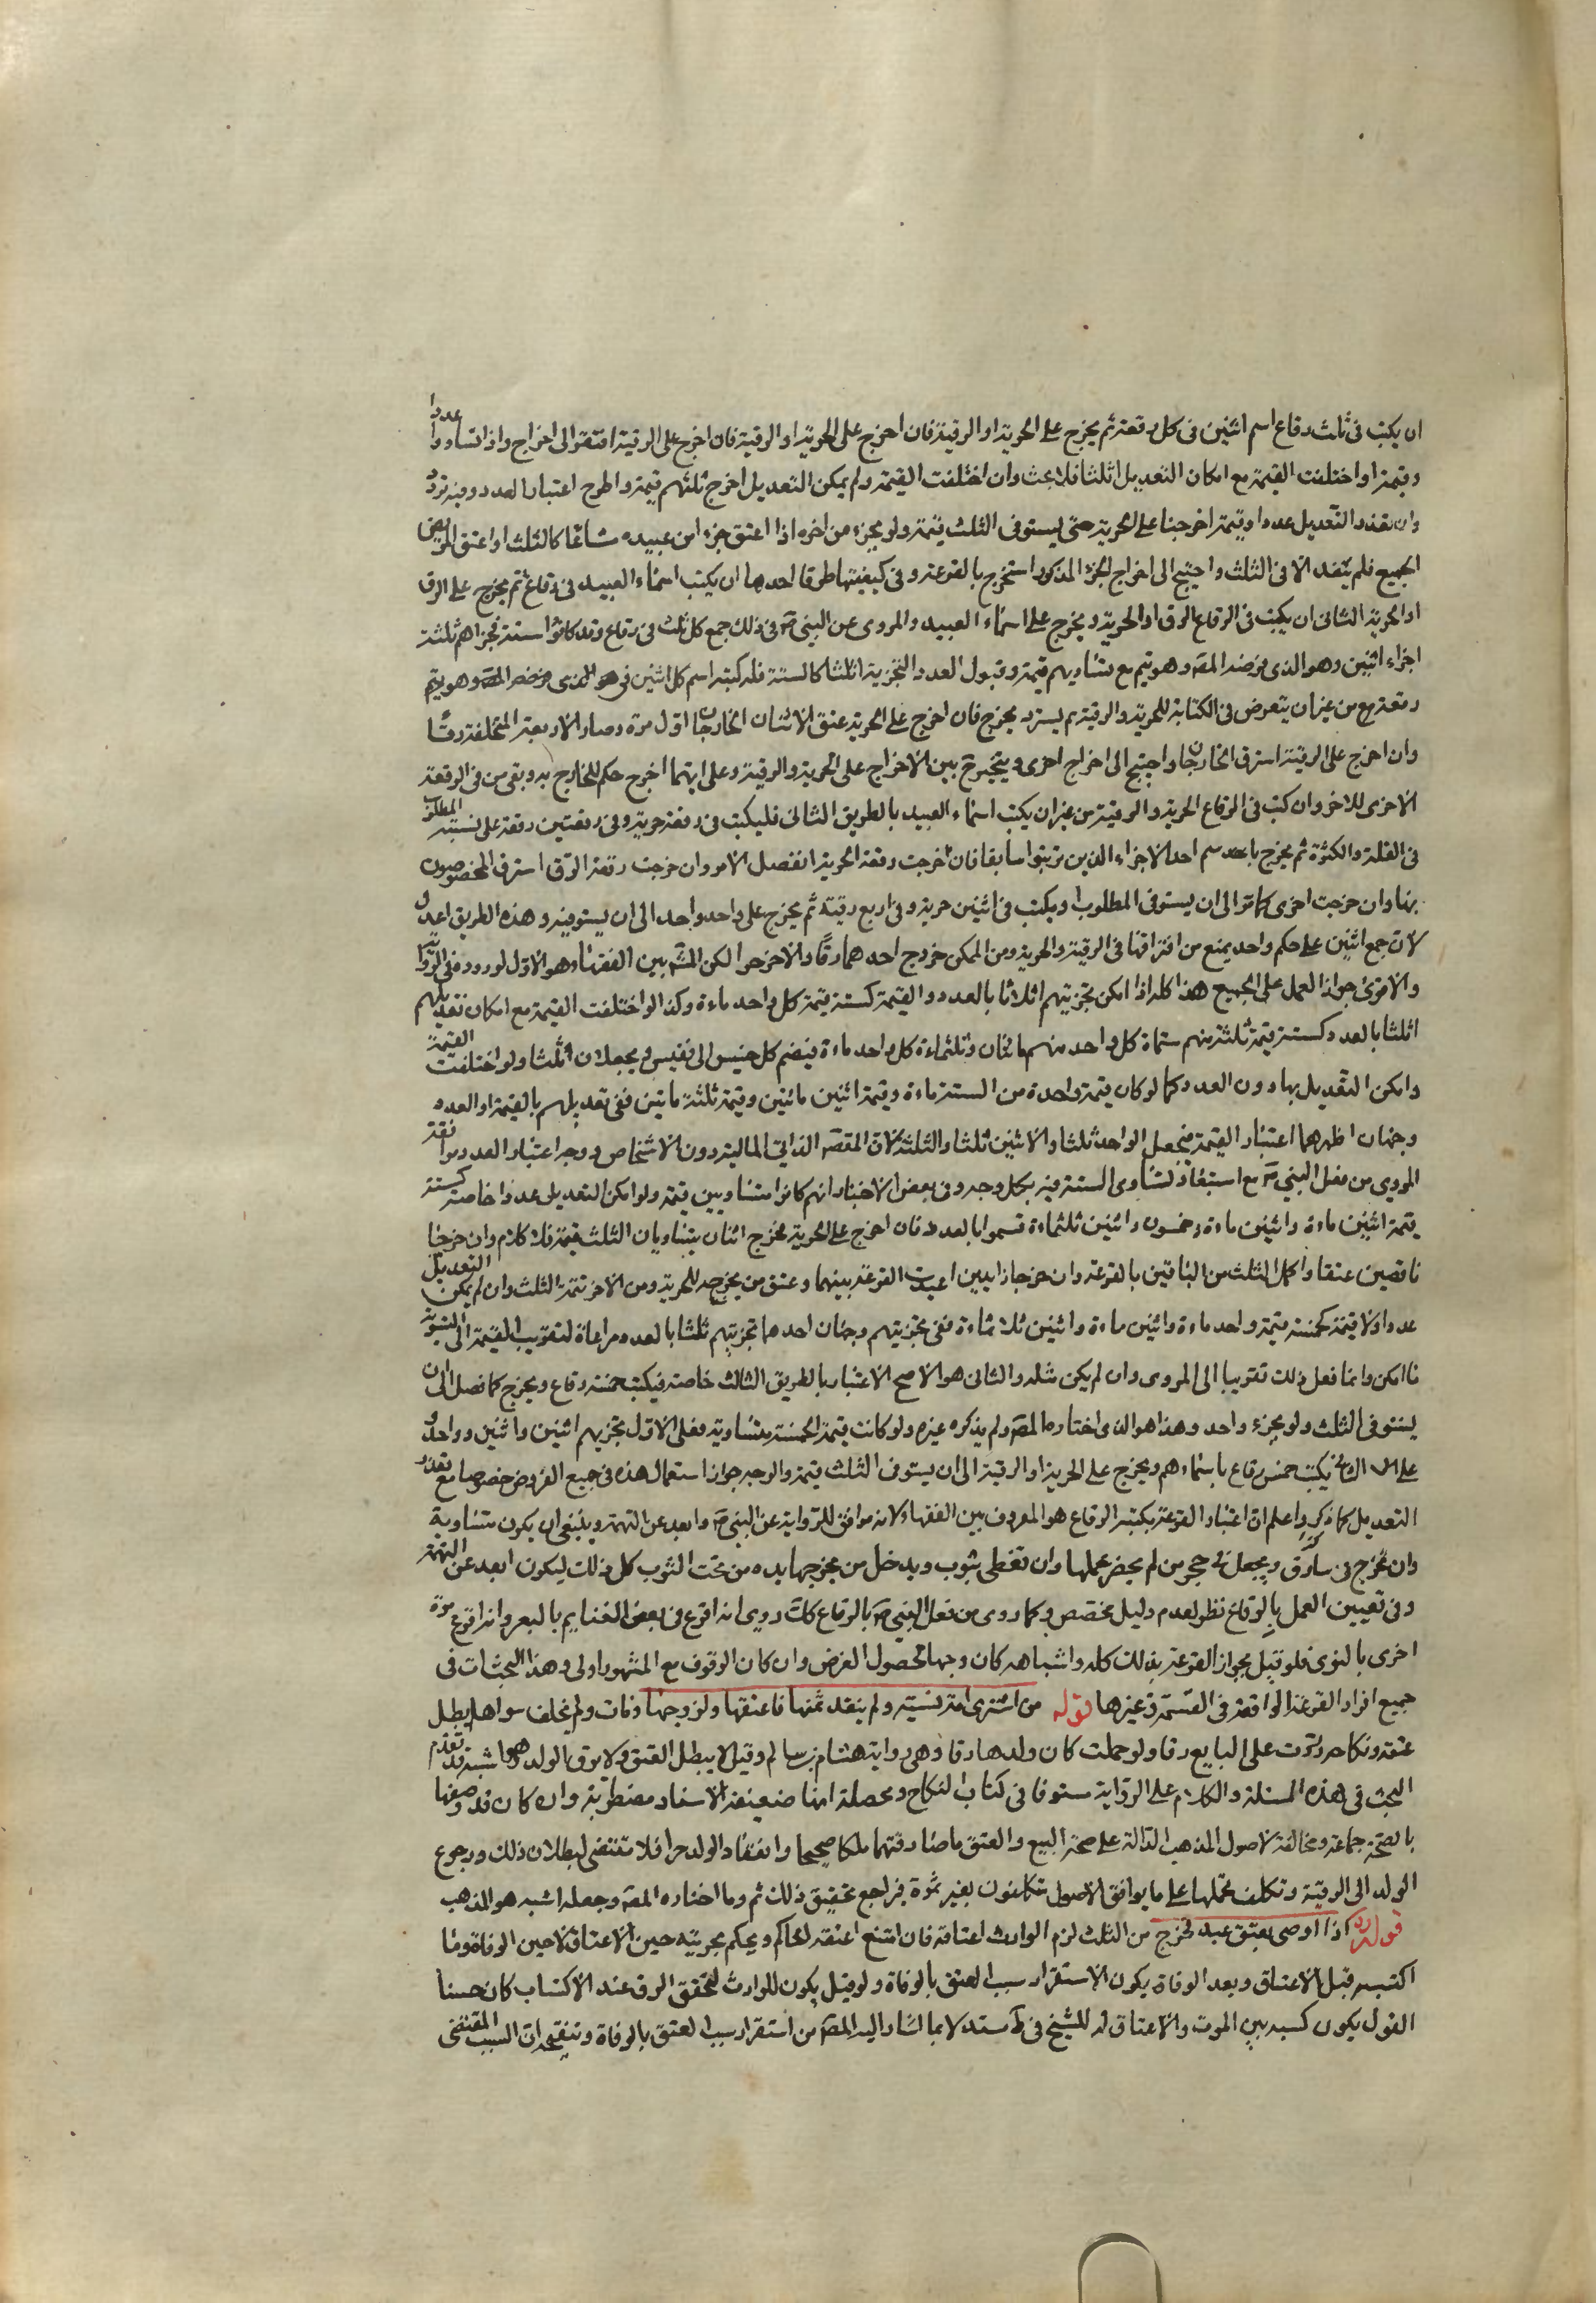 ان يكتب فى ثلث رقاع اسم اثنين فى كل رقعة ثم يخرج على الحرية او الرقية فان اخرج على الحرية او الرقية فان اخرج على الرقية افتقر الى اخراج واذا تساووا عددا
وقيمة او اختلفت القيمة مع امكان التعديل اثلثا فلا بحث وان اختلفت القيمة ولم يمكن التعديل اخرج ثلثهم قيمة واطرح اعتبار العدد وفيه تردد
وان تعذر التعديل عددا وقيمة اخرجنا على الحرية حتى يستوفى الثلث قيمة ولو بجزء من اخر اذا اعتق جزءا من عبيده شائعا كالثلث او اعتق المريض
الجميع فلم ينفذ الا فى الثلث واحتيج الى اخراج الجزء المذكور استخرج بالقرعة وفى كيفيتها طرق احدها ان يكتب اسماء العبيد فى رقاع ثم يخرج على الرق
او الحرية الثانى ان يكتب فى الرقاع الرق او الحرية ويخرج على اسماء العبيد والمروى عن النبى ص فى ذلك جمع كل ثلث فى رقاع وقد كانوا ستة فجزاهم ثلثة
اجزاء اثنين وهو الذى فرضه المص وهو يتم مع تساويهم قيمة وقبول العدد التجزية اثلاثا كالستة فلو كتب اسم كل اثنين فى هو الذى فرضه المص وهو يتم
رقعة مع من غير ان يتعرض فى الكتابة للحرية والرقية ثم يستر ويخرج فان اخرج على الحرية عتق الاثنان الخارجان اول مرة وصار الاربعة المتخلفة رقا
وان اخرج على الرقية استرق الخارجان واحتيج الى اخراج اخرى ويتخير ح بين الاخراج على الحرية والرقية وعلى ايتهما اخرج حكم للخارج به وبقى من فى الرقعة
الاخرى للاخر وان كتب فى الرقاع الحرية والرقية من غير ان يكتب اسماء العبيد بالطريق الثانى فليكتب فى رقعة حرية وفى رقعتين رقعة على نسبة المطلوب
فى القلة والكثرة ثم يخرج باحد سم احد الاجزاء الذين ترتبوا سابقا فان خرجت رقعة الحرية انفصل الامر وان خرجت رقعة الرق استرق المخصوصون
بها وان خرجت اخرى كما مر الى ان يستوفى المطلوب او يكتب فى اثنين حرية وفى اربع رقية ثم يخرج على واحد واحد الى ان يستوفيه وهذه الطريق اعدل
لان جمع اثنين على حكم واحد يمنع من افتراقهما فى الرقية والحرية ومن الممكن خروج احدهما رقا والاخر حرا لكن المشهور بين الفقهاء وهو الاول لوروده فى الرواية
والاقوى جواز العمل على الجميع هذا كله اذا امكن تجزيتهم اثلاثا بالعدد والقيمة كستة قيمة كل واحد ماءة وكذا لو اختلفت القيمة مع امكان تعديلهم
اثلثا بالعدد كستة قيمة ثلثة منهم ستمأة كل واحد منهم مائتان وثلثماءة كل واحد ماءة فيضم كل خسيس الى نفيس ويجعلان ثلثا ولو اختلفت القيمة
وامكن التعديل بها دون العدد كما لو كان قيمة واحدة من الستة ماءة وقيمة اثنين مائتين وقيمة ثلثة ماتين ففى تعديلهم بالقيمة او العدد
وجهان اظهرهما اعتبار القيمة فيجعل الواحد ثلثا والاثنين ثلثا والثلثة لان المقصد الذاتى المالية دون الاشخاص ووجه اعتبار العدد موافقة
المروى من فعل النبى ص مع استبعاد تساوى الستة فيه بكل وجه وفى بعض الاخبار انهم كانوا متساويين قيمة ولو امكن التعديل عددا خاصة كستة
قيمة اثنين ماءة واثنين ماءة وخمسون واثنين ثلثماءة قسموا بالعدد فان اخرج على الحرية فخرج اثنان يتساويان الثلث قيمة فلا كلام وان خرجا
ناقصين عتقا واكمل الثلث من الباقين بالقرعة وان خرجا زايدين اعيدت القرعة بينهما وعتق من يخرج حد للحرية ومن الاخر تتمة الثلث وان لم يمكن التعديل
عددا ولا قيمة كخمسة قيمة واحد ماءة واثنين ماءة واثنين ثلاثماءة ففى تجزيتهم وجهان احدهما تجزيتهم ثلثا بالعدد ومراعاة لتقريب القيمة الى التسوية
ما امكن وانما فعل ذلك تقريبا الى المروى وان لم يكن مثله والثانى هو الاصح الاعتبار بالطريق الثالث خاصة فيكتب خمسة رقاع ويخرج كما فصل الى ان
يستوفى الثلث ولو بجزء واحد وهذا هو الذى اختاره المص ولم يذكره غيره ولو كانت قيمة الخمسة متساوية فعلى الاول تجزيهم اثنين واثنين وواحد
على الثانى يكتب خمس رقاع باسماءهم ويخرج على الحرية او الرقية الى ان يستوفى الثلث قيمة والوجه جواز استعمال هذه فى جميع الفروض خصوصا مع تعذر
التعديل كما ذكر واعلم ان اعتبار القرعة بكتبة الرقاع هو المعروف بين الفقهاء لانه موافق للرواية عن النبى ص وابعد عن التهمة وينبغى ان يكون متساوية
وان تخرج فى بنادق ويجعل فى حجر من لم يحضر عملها وان تغطى بثوب ويدخل من يخرجها يده من تحت الثوب كل ذلك ليكون ابعد عن التهمة
وفى تعيين العمل بالرقاع نظر لعدم دليل مخصص وكما روى من فعل النبى ص بالرقاع كك روى انه اقرع فى بعض الغنايم بالبعر وانه اقرع مرة
اخرى بالنوى فلو قيل بجواز القرعة بذلك كله واشباهه كان وجها لحصول الغرض وان كان الوقوف مع المشهور اولى وهذا البحث ات فى
جميع افراد القرعة الواقعة فى القسمة وغيرها قوله من اشترى امة نسية ولم ينقد ثمنها فاعتقها وتزوجها ومات ولم يخلف سواها بطل
عتقه ونكاحه وردت على البايع رقا ولو حملت كان ولدها رقا وهى رواية هشام بن سالم وقيل لا يبطل العتق ولا يرق الولد وهو اشبه قد تقدم
البحث فى هذه المسئلة والكلام على الرواية مستوفا فى كتاب النكاح ومحصله انها ضعيفة الاسناد مضطربة وان كان قد وصفها
بالصحة جماعة ومخالفة لاصول المذهب الدالة على صحة البيع والعتق ما صادفتهما ملكا صحيحا وانعقاد الولد حرا فلا مقتضى لبطلان ذلك ورجوع
الولد الى الرقية وتكلف تحملها على ما يوافق الاصول متكلفون بغير ثمرة فراجع تحقيق ذلك ثم وما اختاره المص وجعله اشبه هو المذهب
قوله اذا اوصى بعتق عبد فخرج من الثلث لزم الوارث اعتاقه فان امتنع اعتقه الحاكم ويحكم بحريته حين الاعتاق لا حين الوفاة وما
اكتسبه قبل الاعتاق وبعد الوفاة يكون له لاستقرار سبب العتق بالوفاة ولو قيل يكون للوارث لتحقق الرق عند الاكتساب كان حسنا
القول بكون كسبه بين الموت والاعتاق له للشيخ فى ط مستدلا بما اشار اليه المص من استقرار سبب العتق بالوفاة وتنقيحه ان السبب المقتضى